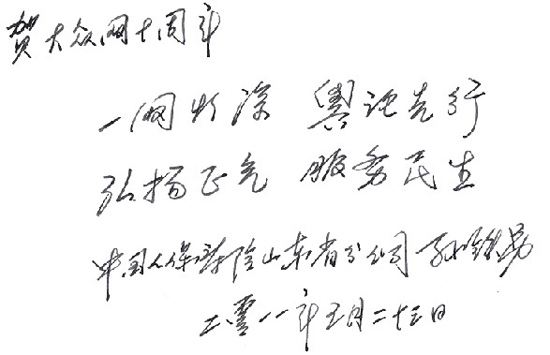 贺大众网十周年
一网情深 舆论先行
弘扬正气 服务民生
中国人保寿险山东省分公司 孙
二零一一年五月二十三日